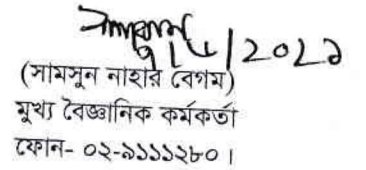 ২০২১
(সামসুন নাহার বেগম)
মুখ্য বৈজ্ঞানিক কর্মকর্তা
ফোন- ০২-৯১১১২৮০।